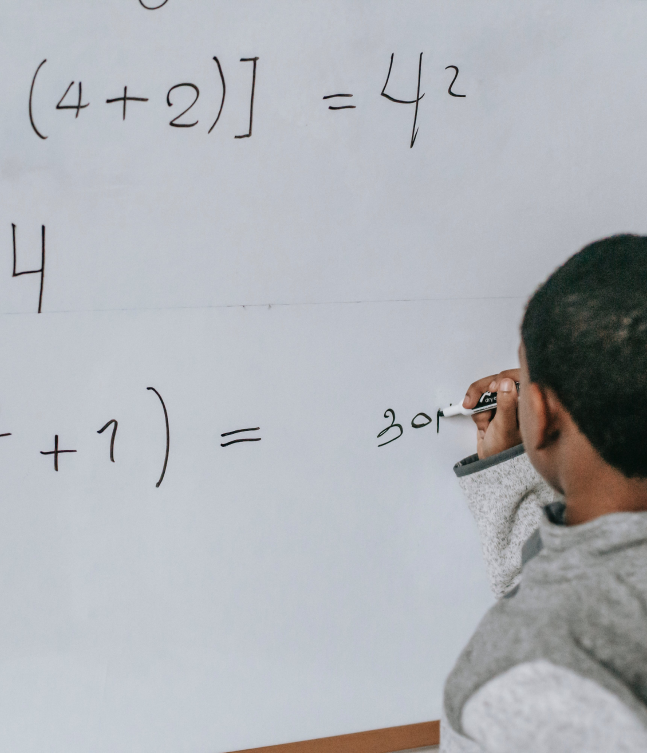 (4+2)] = 42
4
+ 1 ) = 30